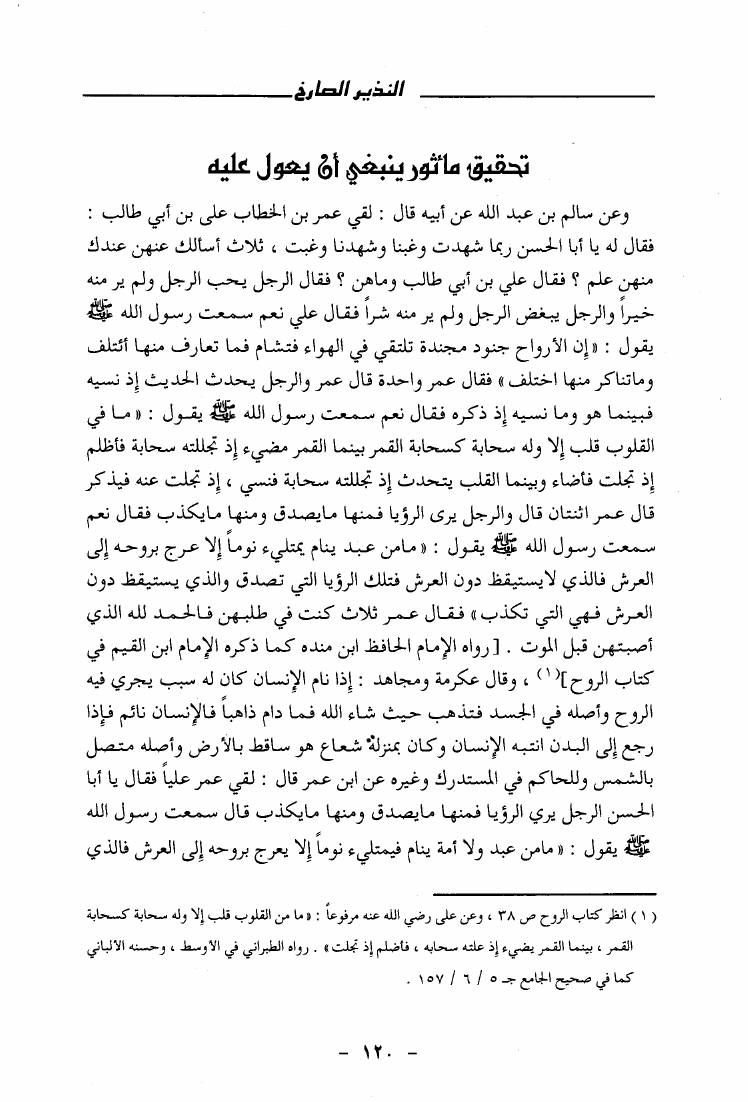 النذير الصارخ
تحقيق مأثور ينبغي أن يعول عليه
وعن سالم بن عبد الله عن أبيه قال : لقي عمر بن الخطاب على بن أبي طالب :
فقال له يا أبا الحسن ربما شهدت وغبنا وشهدنا وغبت ، ثلاث أسألك عنهن عندك
منهن علم ؟ فقال علي بن أبي طالب وماهن ؟ فقال الرجل يحب الرجل ولم ير منه
خيراً والرجل يبغض الرجل ولم ير منه شراً فقال علي نعم سمعت رسول الله ﷺ
يقول : «إن الأرواح جنود مجندة تلتقي في الهواء فتشام فما تعارف منها أئتلف
وماتناكر منها اختلف» فقال عمر واحدة قال عمر والرجل يحدث الحديث إذ نسيه
فبينما هو وما نسيه إذ ذكره فقال نعم سمعت رسول الله ﷺ يقول : «ما في
القلوب قلب إلا وله سحابة كسحابة القمر بينما القمر مضيء إذ تجللته سحابة فأظلم
إذ تجلت فأضاء وبينما القلب يتحدث إذ تجللته سحابة فنسي ، إذ تجلت عنه فيذكر
قال عمر اثنتان قال والرجل يرى الرؤيا فمنها مايصدق ومنها مايكذب فقال نعم
سمعت رسول الله ﷺ يقول : «مامن عبد ينام يمتليء نوماً إلا عرج بروحه إلى
العرش فالذي لايستيقظ دون العرش فتلك الرؤيا التي تصدق والذي يستيقظ دون
العرش فهي التي تكذب» فقال عمر ثلاث كنت في طلبهن فالحمد لله الذي
أصبتهن قبل الموت . [رواه الإمام الحافظ ابن منده كما ذكره الإمام ابن القيم في
كتاب الروح](١) ، وقال عكرمة ومجاهد : إذا نام الإنسان كان له سبب يجري فيه
الروح وأصله في الجسد فتذهب حيث شاء الله فما دام ذاهباً فالإنسان نائم فإذا
رجع إلى البدن انتبه الإنسان وكان بمنزلة شعاع هو ساقط بالأرض وأصله متصل
بالشمس وللحاكم في المستدرك وغيره عن ابن عمر قال : لقي عمر علياً فقال يا أبا
الحسن الرجل يري الرؤيا فمنها مايصدق ومنها مايكذب قال سمعت رسول الله
ﷺ يقول : «مامن عبد ولا أمة ينام فيمتليء نوماً إلا يعرج بروحه إلى العرش فالذي
(١) انظر كتاب الروح ص ٣٨ ، وعن على رضي الله عنه مرفوعاً : «ما من القلوب قلب إلا وله سحابة كسحابة
القمر ، بينما القمر يضيء إذ علته سحابه ، فأضلم إذ تجلت» . رواه الطبراني في الأوسط ، وحسنه الألباني
كما في صحيح الجامع جـ ٥ / ٦ / ١٥٧ .
- ١٢٠ -